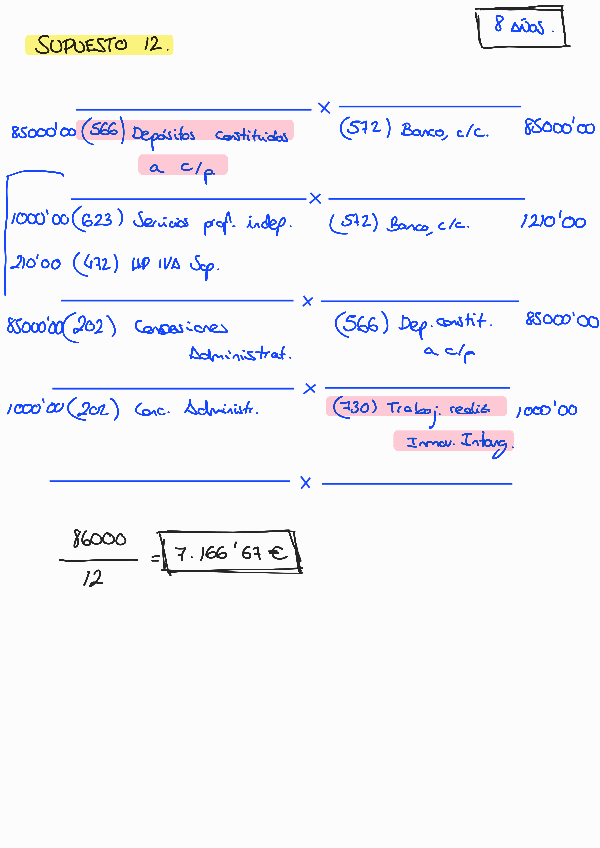 8 AÑOS.
SUPUESTO 12.
85000'00 (566) Depósitos constituidos (572) Banco, c/c. 85000'00
a c/p
1000'00 (623) Servicios prof. indep. (572) Banco, c/c. 1210'00
210'00 (472) HP IVA Sop.
85000'00 (202) Concesiones (566) Dep. constit. 85000'00
Administrat. a c/p
1000'00 (202) Conc. Administr. (730) Trabaj. realiz 1000'00
Inmov. Intang.
86000
12
= 7.166'67 €